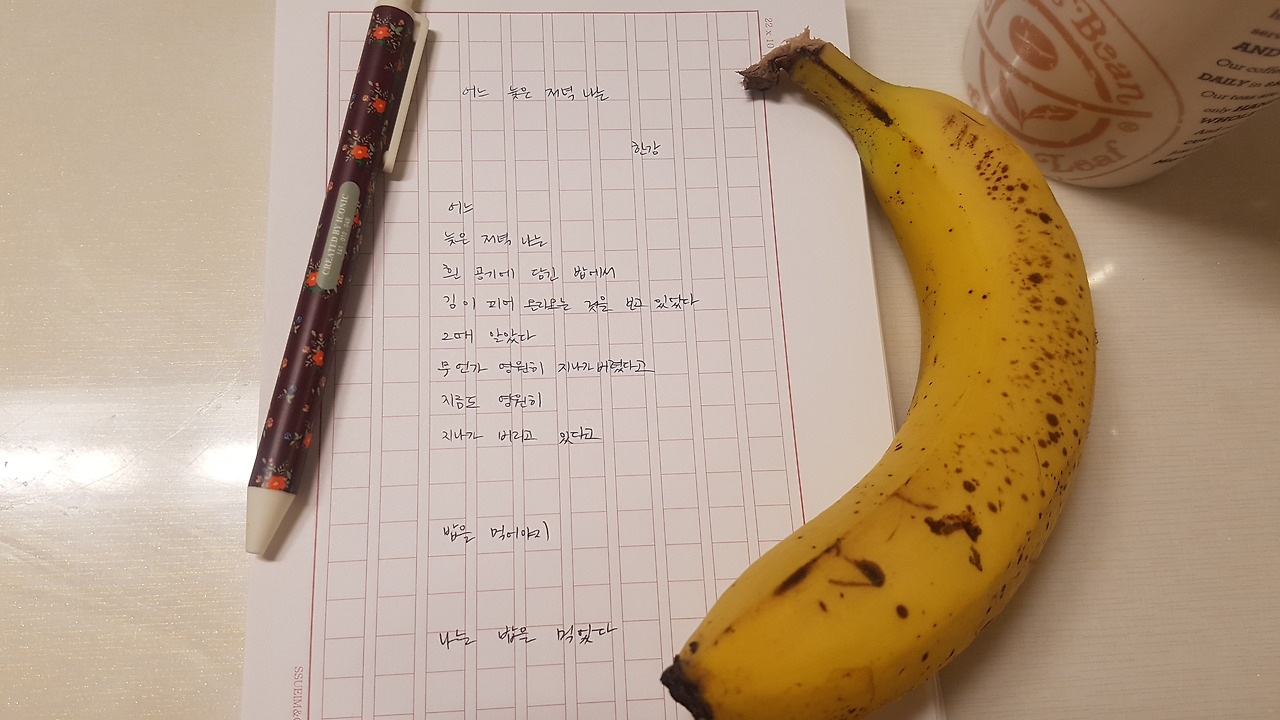 22 x 10
어느 늦은 저녁 나는
한강
어느
늦은 저녁 나는
흰 공기에 담긴 밥에서
김이 피어 올라오는 것을 보고 있었다
그때 알았다
무언가 영원히 지나가버렸다고
지금도 영원히
지나가 버리고 있다고
밥을 먹어야지
나는 밥을 먹었다
CREATED BY ICONIC
SSUEIM&C
Bean
Leaf
AND
Our coffe
DAILY in s
Our teas
only HAN
WHOL